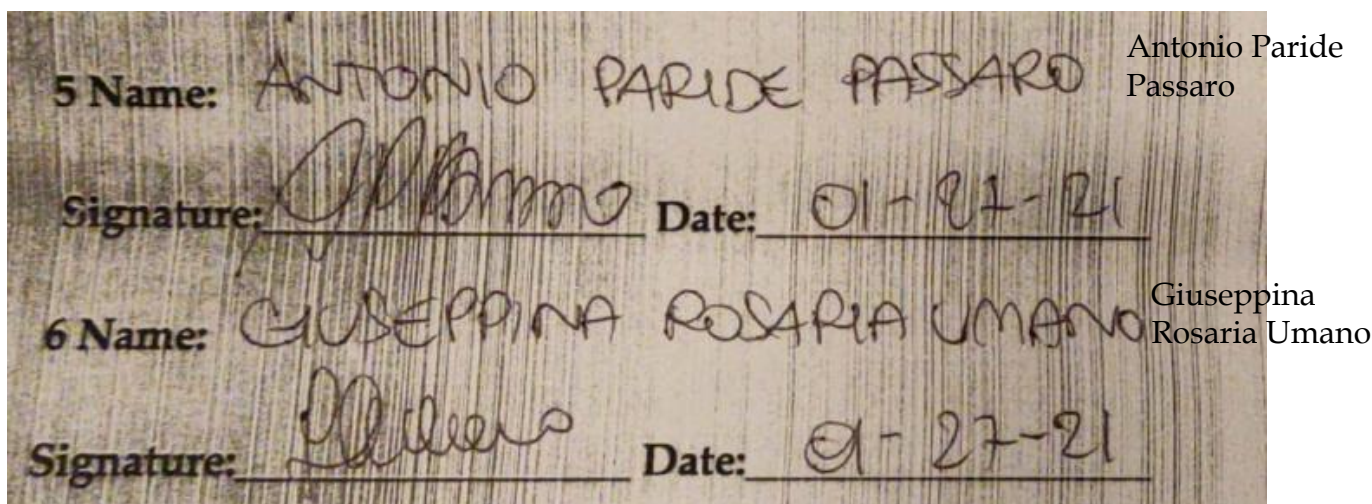 5 Name: ANTONIO PARIDE PASSARO
Antonio Paride
Passaro
Signature: Date: 01-27-21
6 Name: GIUSEPPINA ROSARIA UMANO
Giuseppina
Rosaria Umano
Signature: Date: 01-27-21